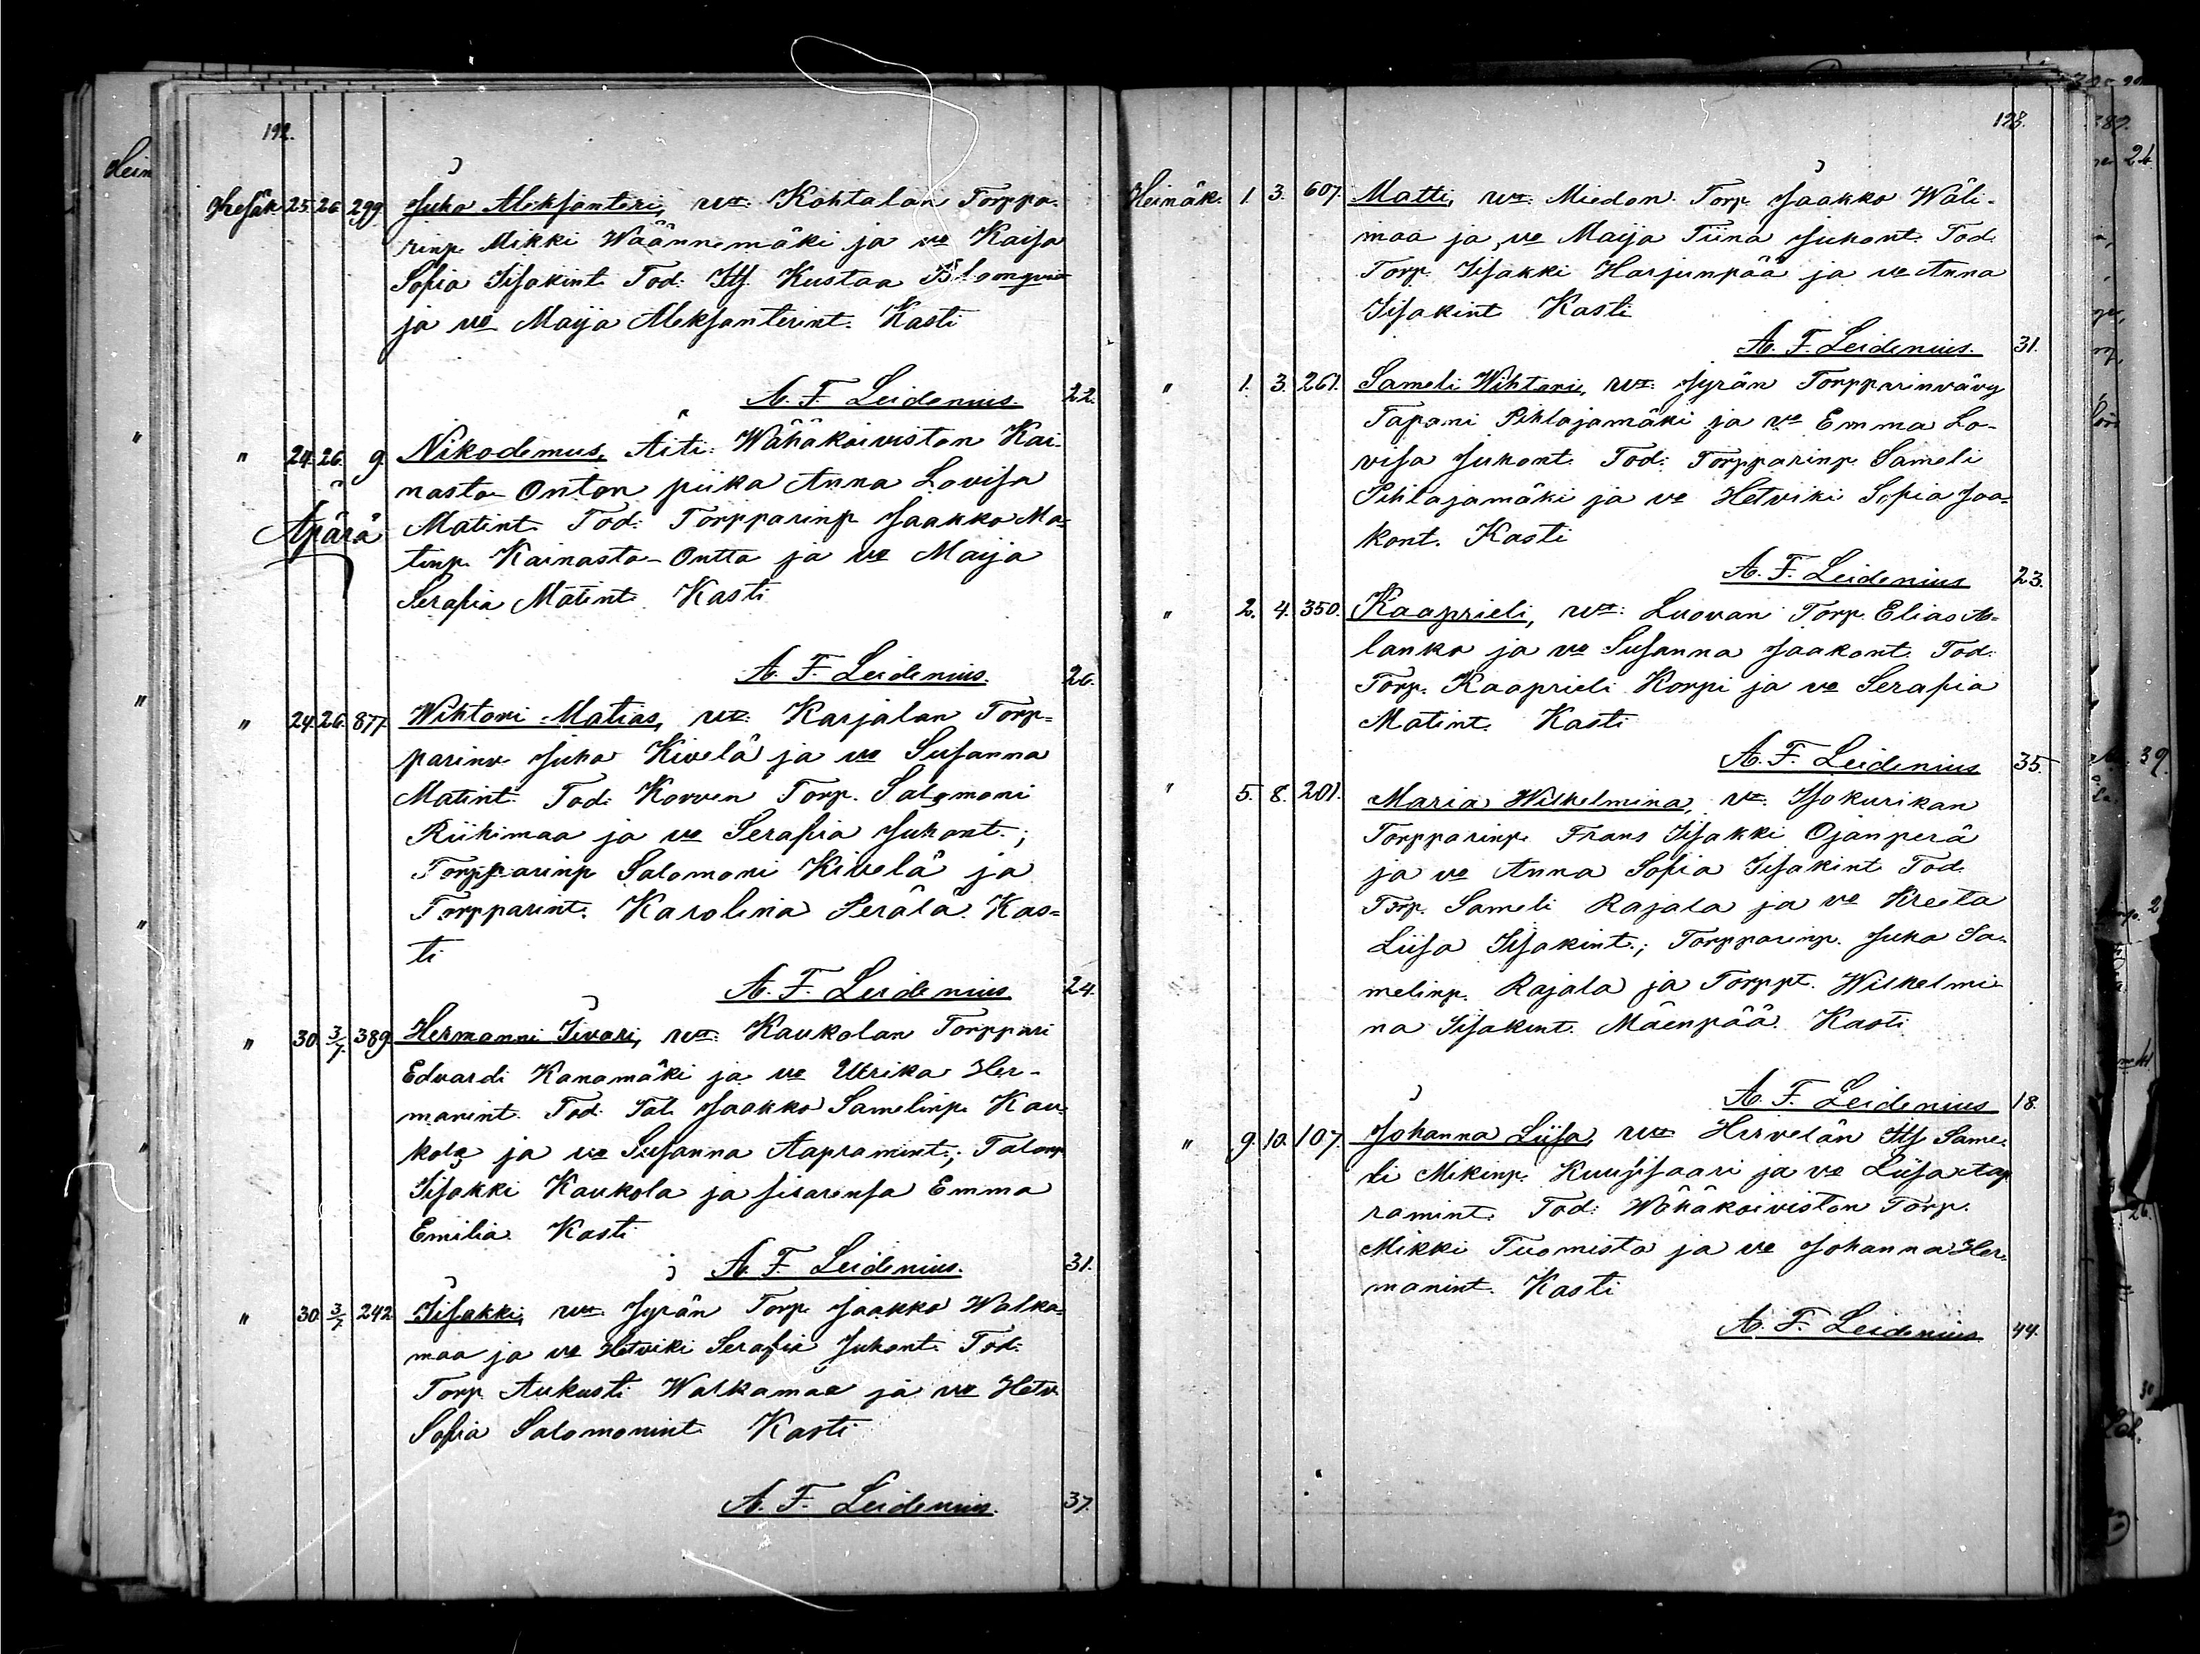 192.
Kesäk. 25. 26. 299. Juho Aleksanteri, vv: Kohtalan Torppa-
rinp. Mikki Wäännmäki ja vo Kaisa
Sofia Iisakint. Tod: Its. Kustaa Blomqvist
ja vo Maija Aleksanterint. Kasti
A. F. Leidenius. 22.
" 24. 26. 9. Nikodemus, Äiti: Wähäkoiviston Kai-
nasto-Onton piika Anna Lovisa
Apärä Matint. Tod: Torpparinp. Jaakko Ma-
tinp. Kainasto-Ontto ja vo Maija
Serafia Matint. Kasti
A. F. Leidenius. 26.
" 24. 26. 877. Wihtori Matias, vv: Karjalan Torp-
parinv. Juho Kivelä ja vo Susanna
Matint. Tod: Korven Torp. Salomoni
Riihimaa ja vo Serafia Juhont.;
Torpparinp. Salomoni Kivelä ja
Torpparint. Karolina Perälä. Kas-
ti
A. F. Leidenius 24.
" 30. 3/7. 389. Hermanni Iivari, vv: Kaukolan Torppari
Edvardi Kanamäki ja vo Ulrika Her-
manint. Tod: Tal. Jaakko Samelinp. Kau-
kola ja vo Susanna Aapramint.; Talonp.
Iisakki Kaukola ja sisarensa Emma
Emilia. Kasti
A. F. Leidenius. 31.
" 30. 3/7. 242. Iisakki, vv: Jyrän Torp. Jaakko Walka-
maa ja vo Hetviki Serafia Juhont. Tod:
Torp. Aukusti Walkamaa ja vo Hetv.
Sofia Salomonint. Kasti
A. F. Leidenius. 37.
193.
Heinäk. 1. 3. 607. Matti, vv: Miedon Torp. Jaakko Wäli-
maa ja vo Maija Tiina Juhont. Tod:
Torp. Iisakki Harjunpää ja vo Anna
Iisakint. Kasti
A. F. Leidenius. 31.
" 1. 3. 261. Sameli Wihtori, vv: Jyrän Torpparinvävy
Tapani Pihlajamäki ja vo Emma Lo-
visa Juhont. Tod: Torpparinp. Sameli
Pihlajamäki ja vo Hetviki Sofia Jaa-
kont. Kasti
A. F. Leidenius 23.
" 2. 4. 350. Kaaprieli, vv: Luovan Torp. Elias A-
lanko ja vo Susanna Jaakont. Tod:
Torp. Kaaprieli Korpi ja vo Serafia
Matint. Kasti
A. F. Leidenius 35.
" 5. 8. 201. Maria Wilhelmina, vv: Isokurikan
Torpparinp. Frans Iisakki Ojanperä
ja vo Anna Sofia Iisakint. Tod:
Torp. Sameli Rajala ja vo Kreeta
Liisa Iisakint.; Torpparinp. Juha Sa-
melinp. Rajala ja Torppt. Wilhelmi-
na Iisakint. Mäenpää. Kasti
A. F. Leidenius 18.
" 9. 10. 107. Johanna Liisa, vv: Hirvelän Its. Same-
li Mikinp. Kuusisaari ja vo Liisa Aap-
ramint. Tod: Wähäkoiviston Torp.
Mikki Tuomisto ja vo Johanna Her-
manint. Kasti
A. F. Leidenius. 44.